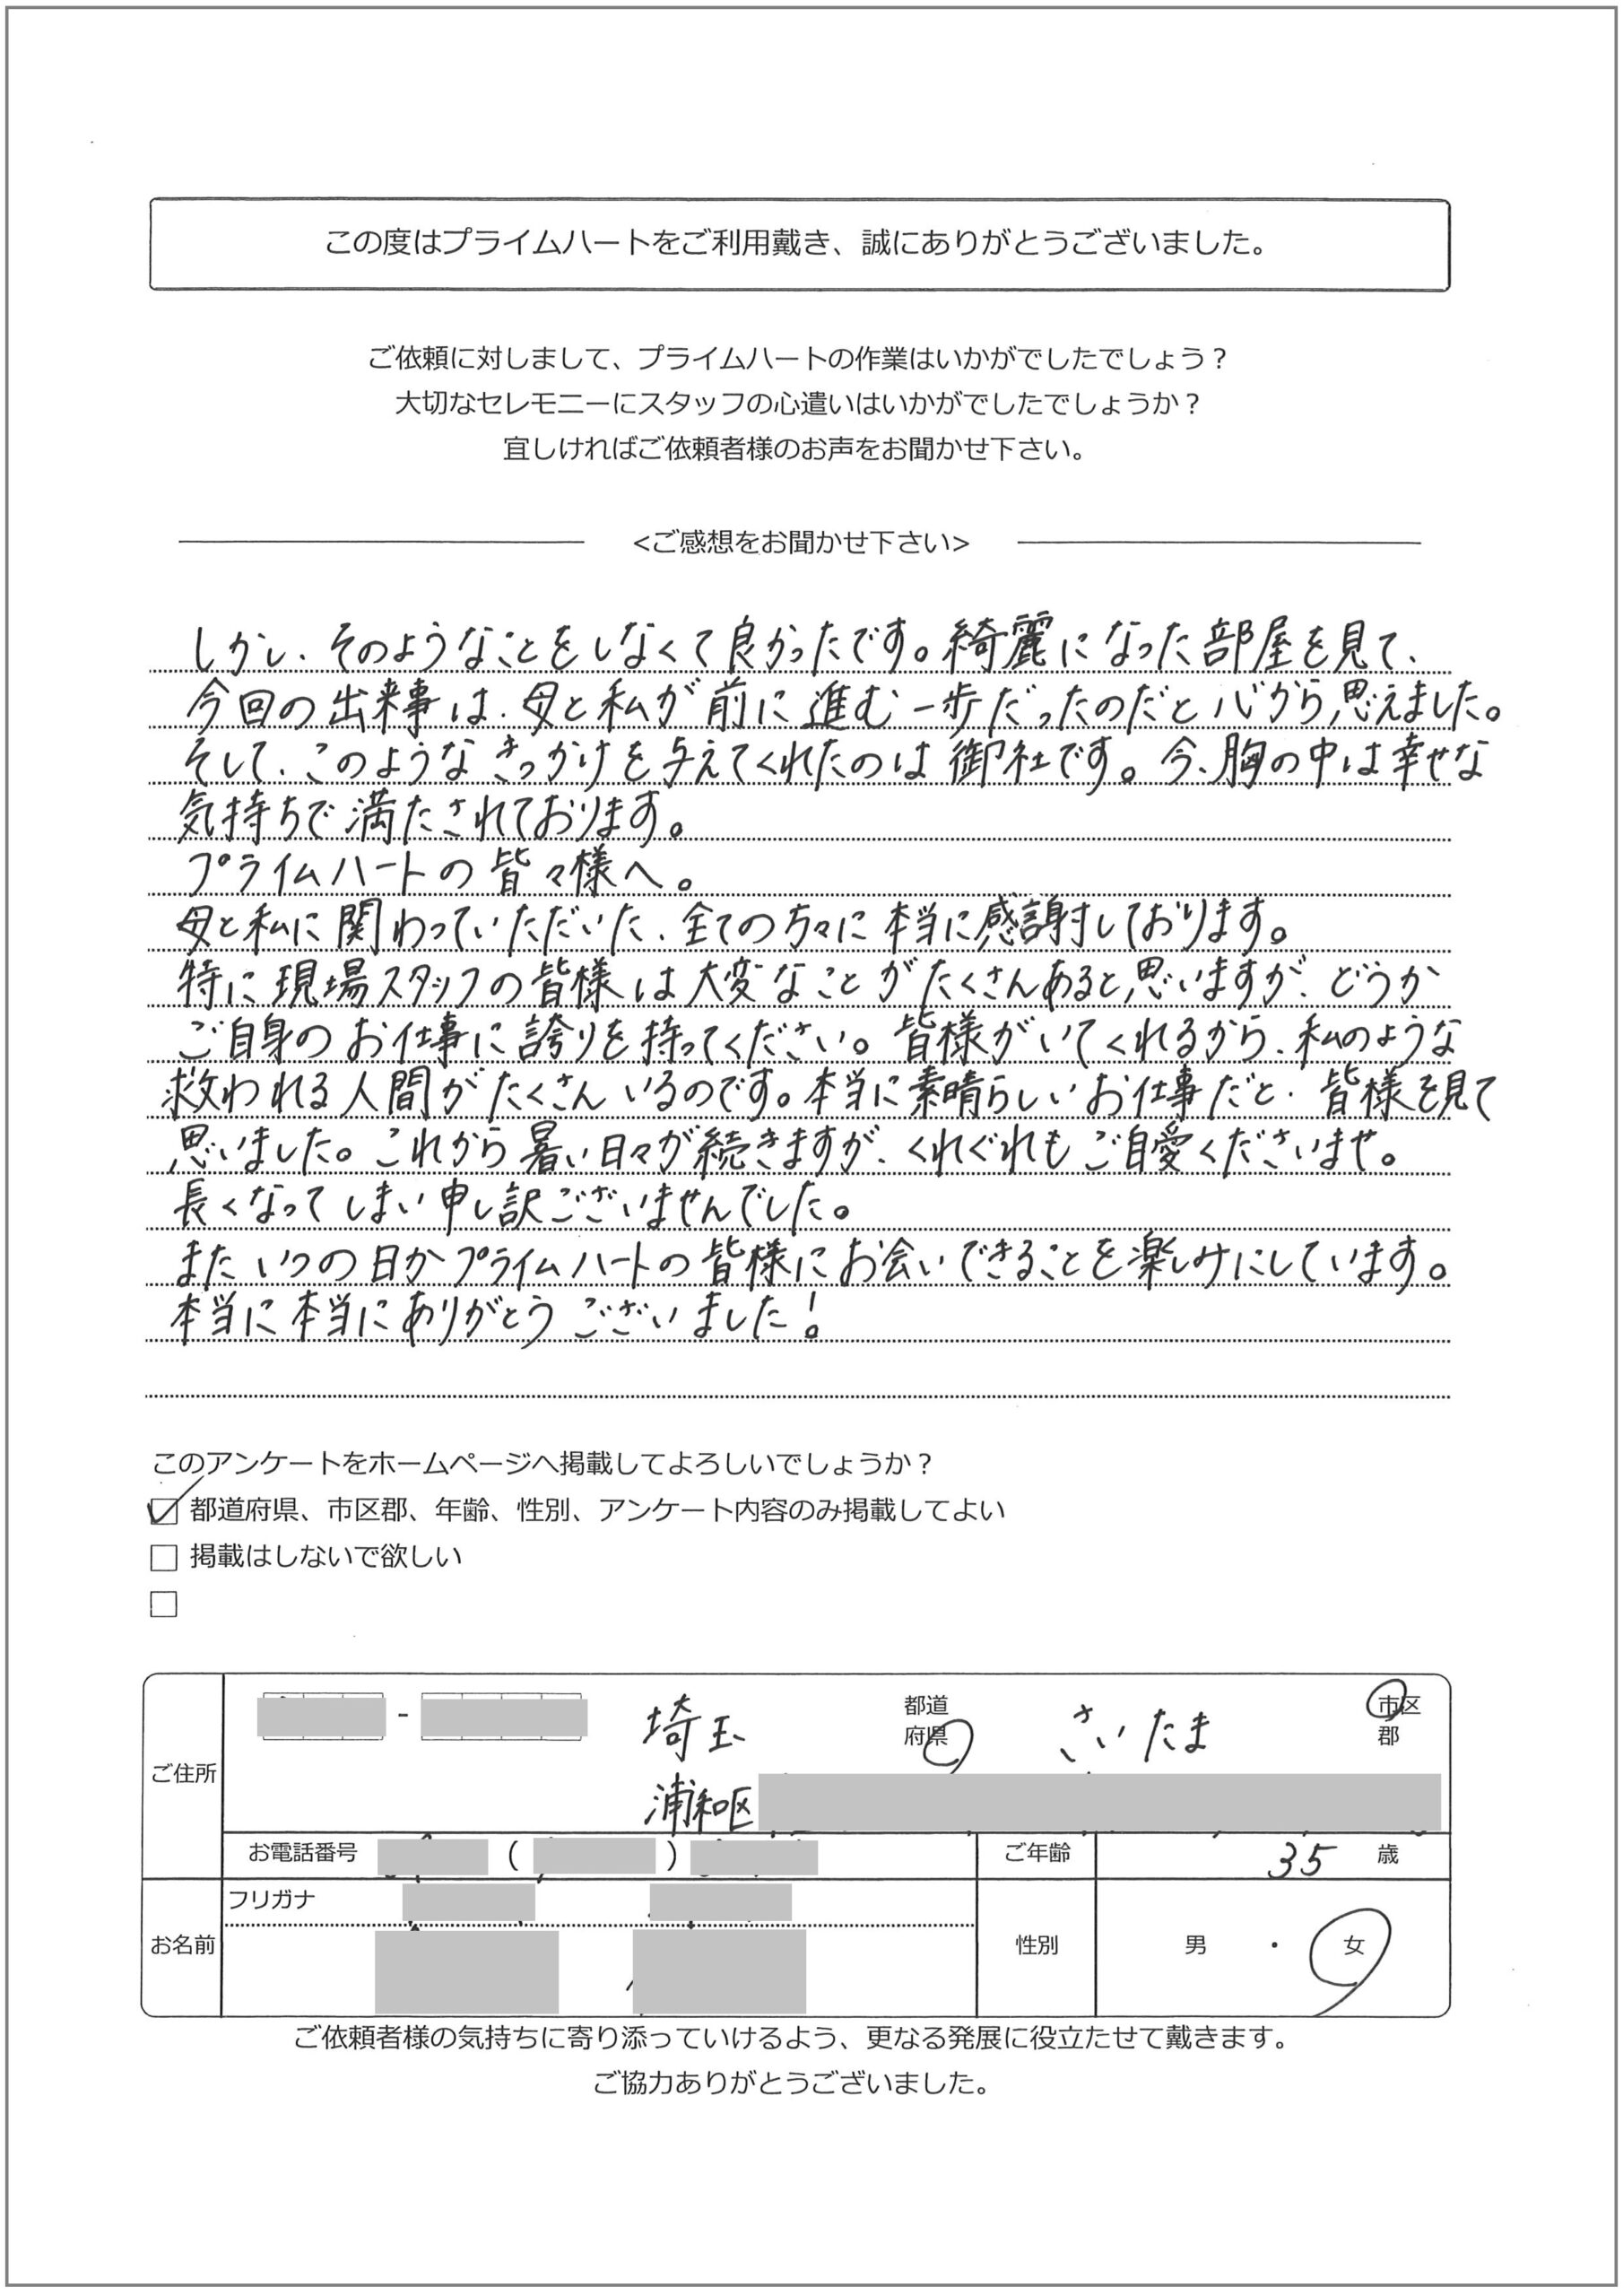 この度はプライムハートをご利用戴き、誠にありがとうございました。
ご依頼に対しまして、プライムハートの作業はいかがでしたでしょう？
大切なセレモニーにスタッフの心遣いはいかがでしたでしょうか？
宜しければご依頼者様のお声をお聞かせ下さい。
<ご感想をお聞かせ下さい>
しかし、そのようなことをしなくて良かったです。綺麗になった部屋を見て、
今回の出来事は、母と私が前に進む一歩だったのだと心から思えました。
そして、このようなきっかけを与えてくれたのは御社です。今、胸の中は幸せな
気持ちで満たされております。
プライムハートの皆々様へ。
母と私に関わっていただいた、全ての方々に本当に感謝しております。
特に現場スタッフの皆様は大変なことがたくさんあると思いますが、どうか
ご自身のお仕事に誇りを持ってください。皆様がいてくれるから、私のような
救われる人間がたくさんいるのです。本当に素晴らしいお仕事だと、皆様を見て
思いました。これから暑い日々が続きますが、くれぐれもご自愛くださいませ。
長くなってしまい申し訳ございませんでした。
またいつの日かプライムハートの皆様にお会いできることを楽しみにしています。
本当に本当にありがとうございました！
このアンケートをホームページへ掲載してよろしいでしょうか？
都道府県、市区郡、年齢、性別、アンケート内容のみ掲載してよい
掲載はしないで欲しい
ご住所 - 埼玉 都道府県 さいたま 市区郡
浦和区
お電話番号 ( ) ご年齢 35 歳
フリガナ
お名前 性別 男 ・ 女
ご依頼者様の気持ちに寄り添っていけるよう、更なる発展に役立たせて戴きます。
ご協力ありがとうございました。